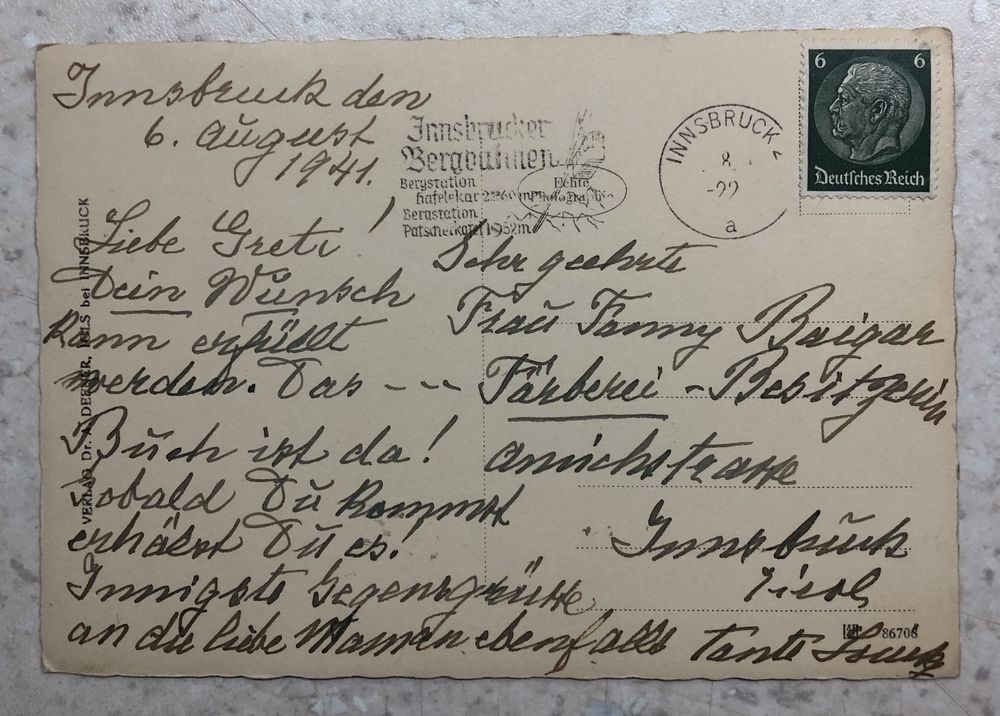 Innsbruck den
6. August
1941.
Liebe Gretl!
Dein Wunsch
kann erfüllt
werden. Das ---
Buch ist da!
Sobald Du kommst
erhälst Du es!
Innigste Gegengrüsse
an die liebe Maman ebenfalls Tante
Sehr geehrte
Frau Fanny Baigar
Färberei - Besitzerin
Anichstrasse
Innsbruck
Tirol
Innsbrucker
Bergbahnen
Bergstation
Hafelekar 2260m
Bergstation
Patscherkofel 1952m
Echte
Photographie
INNSBRUCK 2
8
-22
a
6 6
Deutsches Reich
VERLAG Dr. A. DEFNER, IGLS bei INNSBRUCK
86708